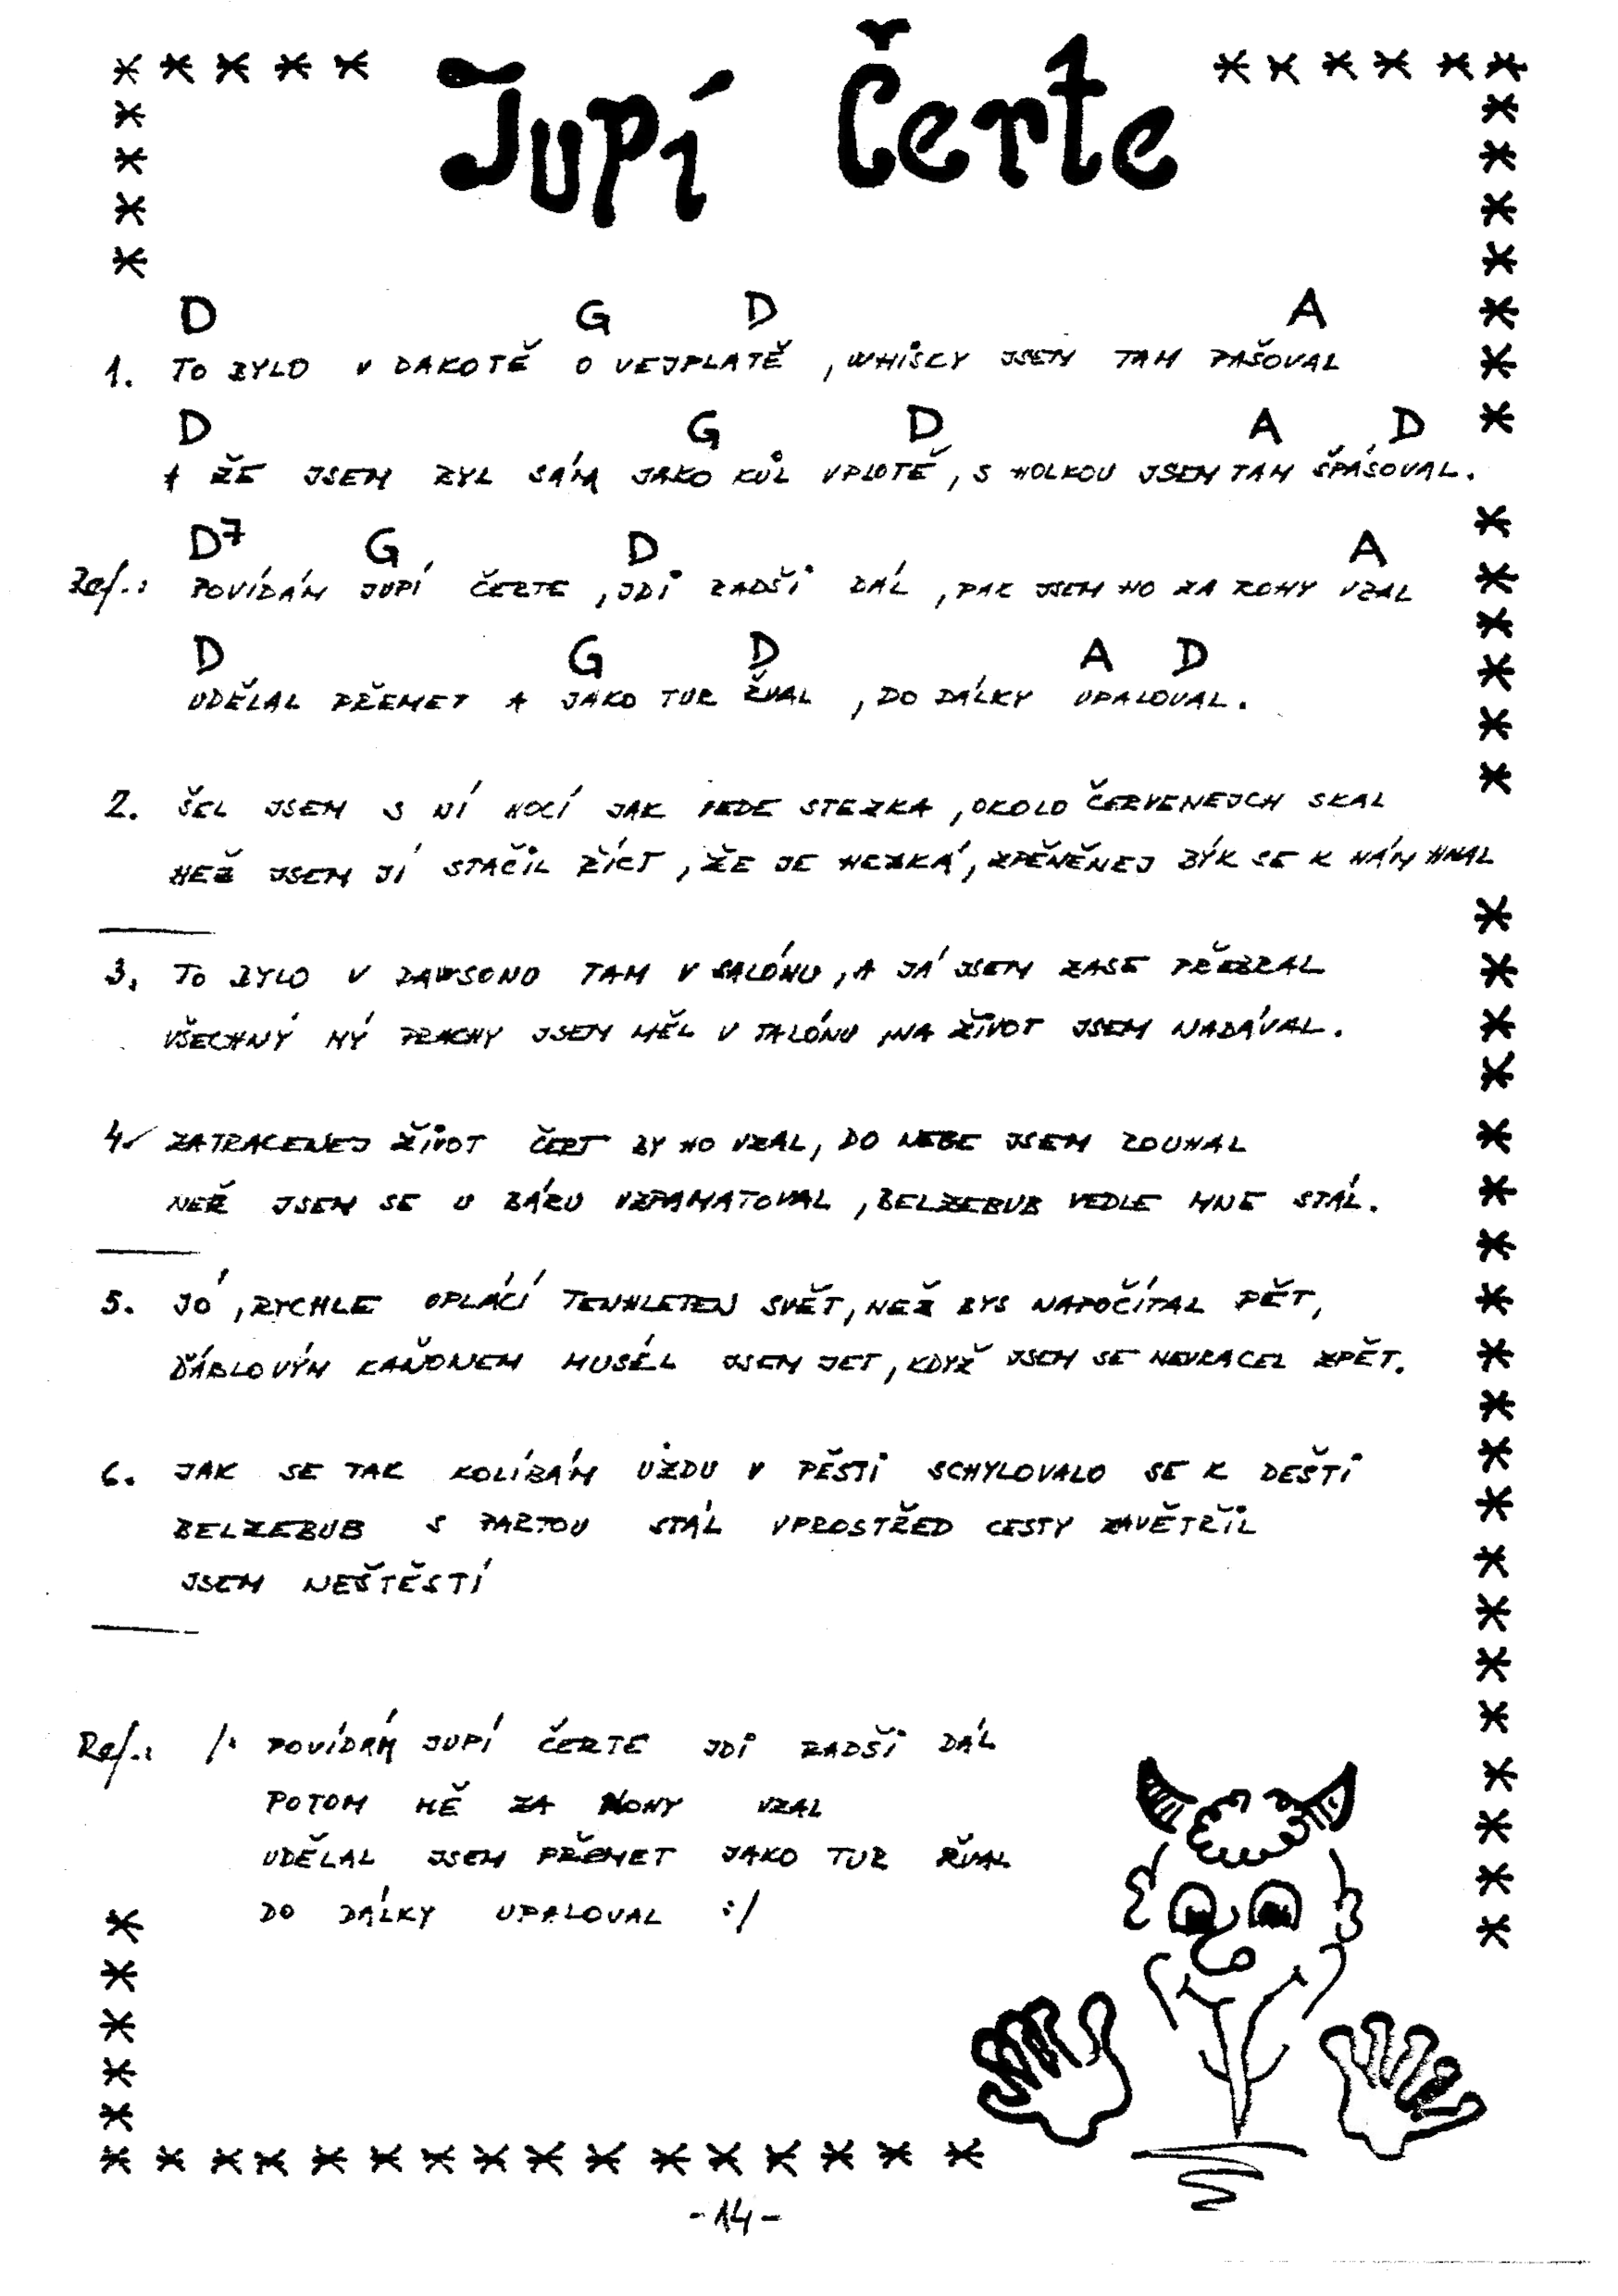 Jupí Čerte
D G D A
1. TO BYLO V DAKOTĚ O VEJPLATĚ, WHISKY JSEM TAM PAŠOVAL
D G D A D
A ŽE JSEM BYL SÁM JAKO KŮL V PLOTĚ, S HOLKOU JSEM TAM ŠPÁSOVAL.
D7 G D A
Ref.: POVÍDÁM JUPÍ ČERTE, JDI RADŠI DÁL, PAK JSEM HO ZA ROHY VZAL
D G D A D
UDĚLAL PŘEMET A JAKO TUR ŘVAL, DO DÁLKY UPALOVAL.
2. ŠEL JSEM S NÍ NOCÍ JAK VEDE STEZKA, OKOLO ČERVENEJCH SKAL
NEŽ JSEM JÍ STAČIL ŘÍCT, ŽE JE HEZKÁ, ZPĚNĚNEJ BÝK SE K NÁM HNAL
3. TO BYLO V DAWSONU TAM V SALÓNU, A JÁ JSEM ZASE PŘEBRAL
VŠECHNÝ MÝ PRACHY JSEM MĚL V TALÓNU, NA ŽIVOT JSEM NADÁVAL.
4. ZATRACENEJ ŽIVOT ČERT BY HO VZAL, DO NEBE JSEM ROUHAL
NEŽ JSEM SE U BÁRU VZPAMATOVAL, BELZEBUB VEDLE MNE STÁL.
5. JÓ, RYCHLE OPLÁCÍ TENHLETEN SVĚT, NEŽ BYS NAPOČÍTAL PĚT,
ĎÁBLOVÝM KAŇONEM MUSEL JSEM JET, KDYŽ JSEM SE NEVRACEL ZPĚT.
6. JAK SE TAK KOLÍBÁM UZDU V PĚSTI SCHYLOVALO SE K DEŠTI
BELZEBUB S PARTOU STÁL VPROSTŘED CESTY ZAVĚTŘIL
JSEM NEŠTĚSTÍ
Ref.: /: POVÍDÁM JUPÍ ČERTE JDI RADŠI DÁL
POTOM MĚ ZA NOHY VZAL
UDĚLAL JSEM PŘEMET JAKO TUR ŘVAL
DO DÁLKY UPALOVAL :/
-14-